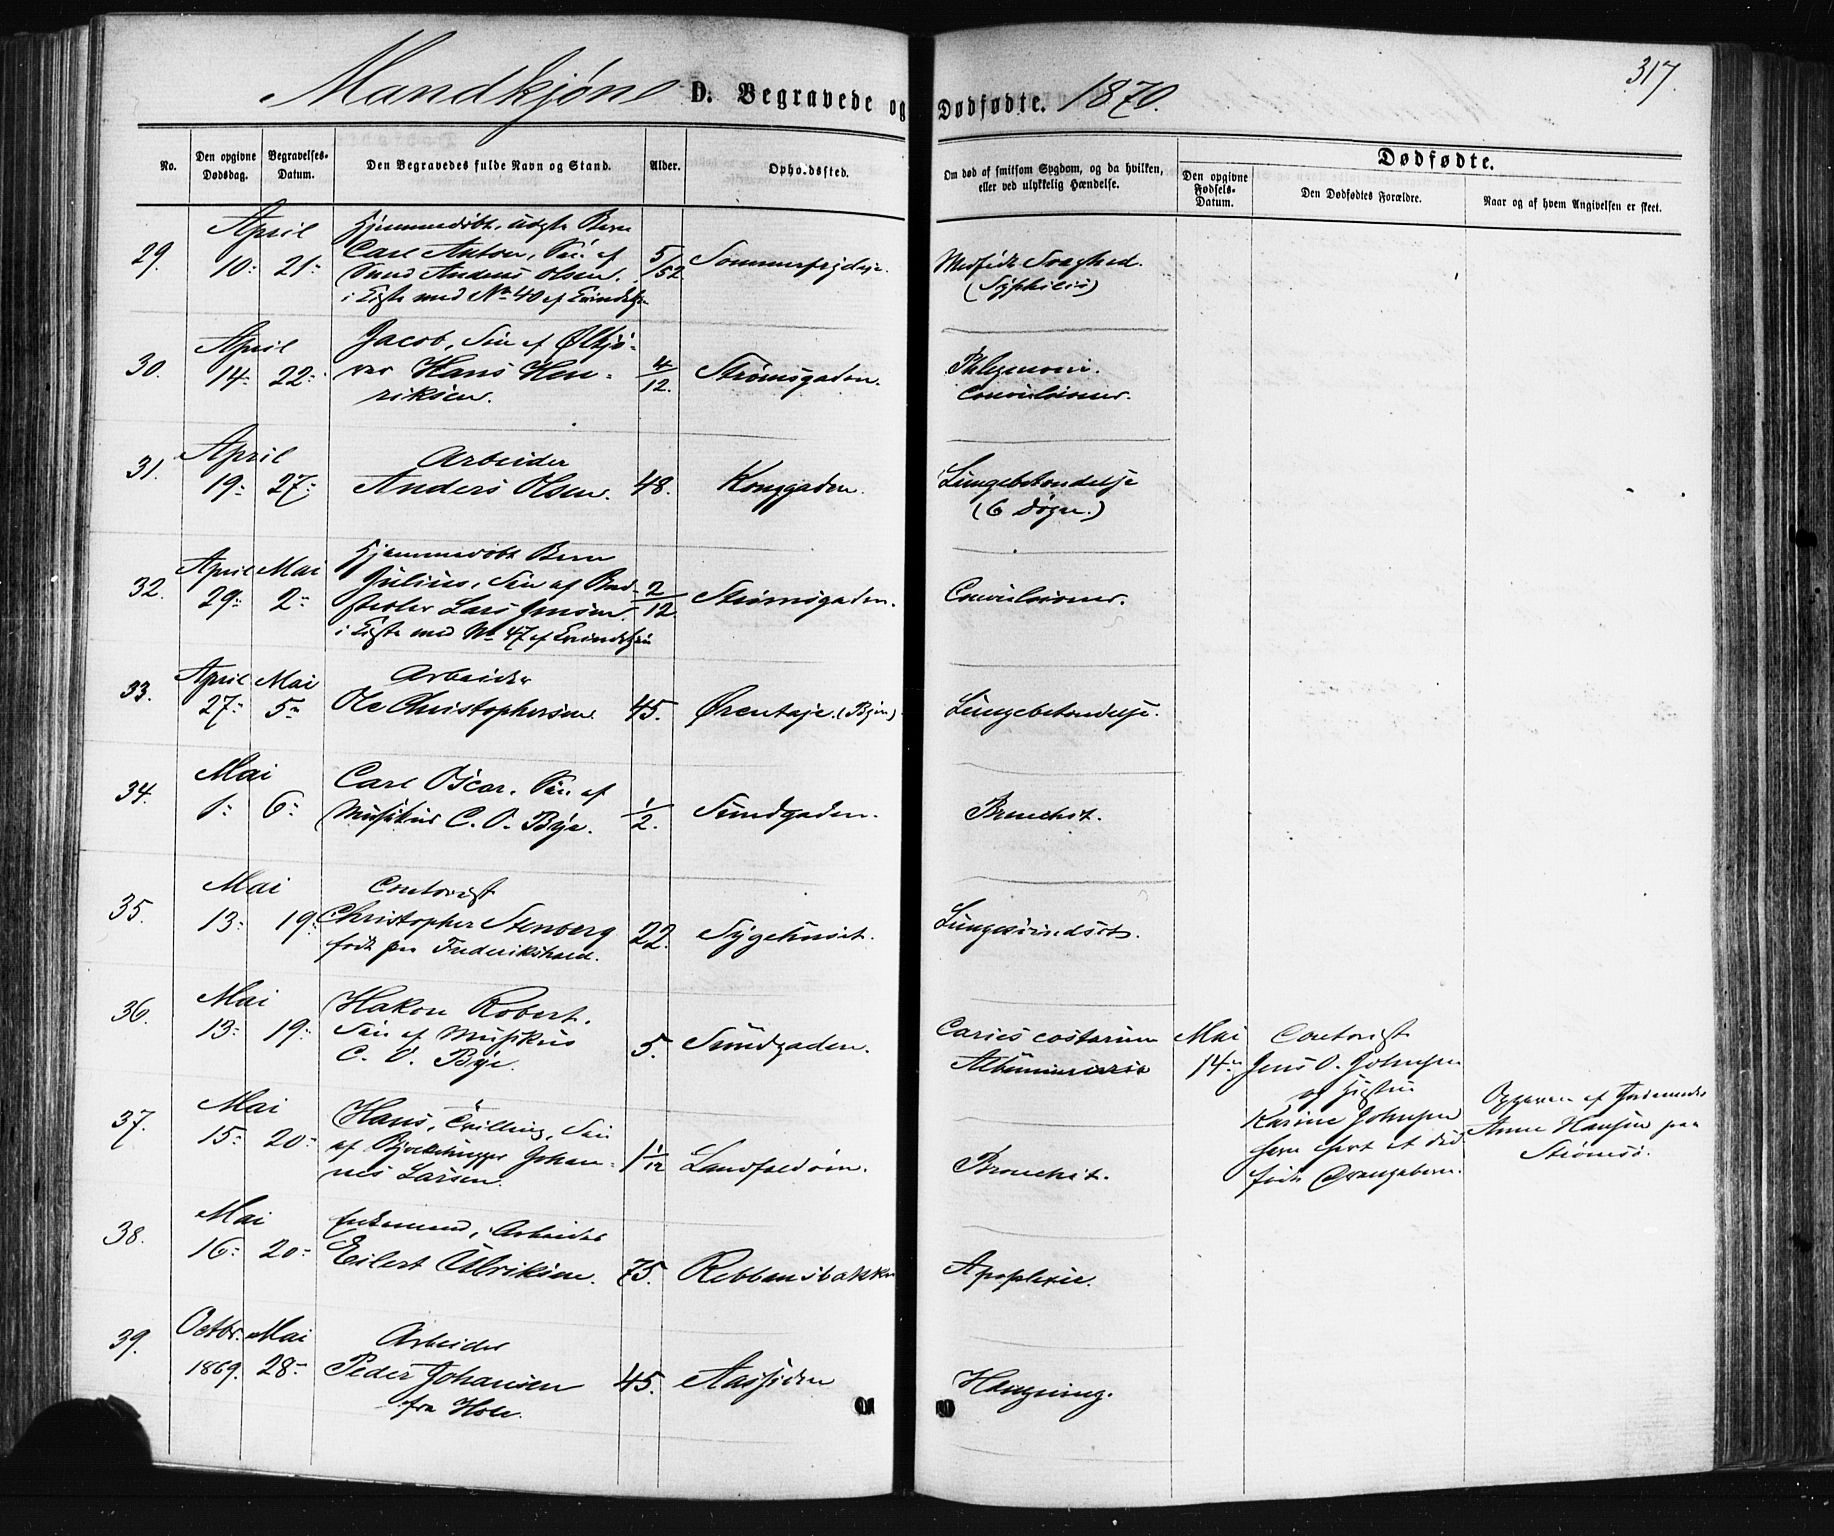 Mandkjøn D. Begravede og Dødfødte. 1870.
317.
No.
Den opgivne Dødsdag.
Begravelses-Datum.
Den Begravedes fulde Navn og Stand.
Alder.
Opholdssted.
Om død af smitsom Sygdom, og da hvilken,
eller ved ulykkelig Hændelse.
Dødfødte.
Den opgivne Fødsels-Datum.
Den Dødfødtes Forældre.
Naar og af hvem Angivelsen er skeet.
29.
April
10: 21:
Hjemmedøbt, uægte Barn
Carl Anton, Søn af
Anders Olsen.
i Kiste med No 40 af Qvindekjøn
5/52
Medfødt Svaghed.
(Syphilis)
30.
April
14: 22:
Jacob, Søn af
Hans Hen-
riksen.
4/12.
Strømsgaden.
Phlegmone.
Convulsioner.
31.
April
19: 27:
Arbeider
Anders Olsen.
48.
Konggaden.
Lungebetændelse
(6 Døgn.)
32.
April Mai
29: 2:
Hjemmedøbt Barn
Julius, Søn af Bød-
Lars Jensen.
i Kiste med No 47 af Qvindekjøn
2/12.
Strømsgaden.
Convulsioner.
33.
April Mai
27: 5:
Arbeider
Ole Christophersen.
45.
Lungebetændelse.
34.
Mai
1: 6:
Carl Oscar, Søn af
Musikus C. O. Bye.
1/2.
Sundgaden.
Bronchit.
35.
Mai
13: 19:
Contorist
Christopher Stenberg
født paa Frederikshald.
22.
Sygehuset.
Lungesvindsot.
36.
Mai
13: 19:
Hakon Robert,
Søn af Musikus
C. O. Bye.
5.
Sundgaden.
Caries costarum
Albuminurie
Mai
14:
Contorist
Jens O. Johnsen
og Hustru
Karine Johnsen
født Drengebarn.
Opgiven af Jordemoder
Anne Hansen paa
Strømsø.
37.
Mai
15: 20:
Hans, Tvilling, Søn
af Johan-
nes Larsen.
1 1/12
Landfaldøen.
Bronchit.
38.
Mai
16: 20:
Enkemand, Arbeider
Eilert Ulriksen.
75.
Rebbansbakken
Apoplexie.
39.
Octbr. Mai
1869. 28:
Arbeider
Peder Johansen
fra Hole.
45.
Aassiden
Hængning.